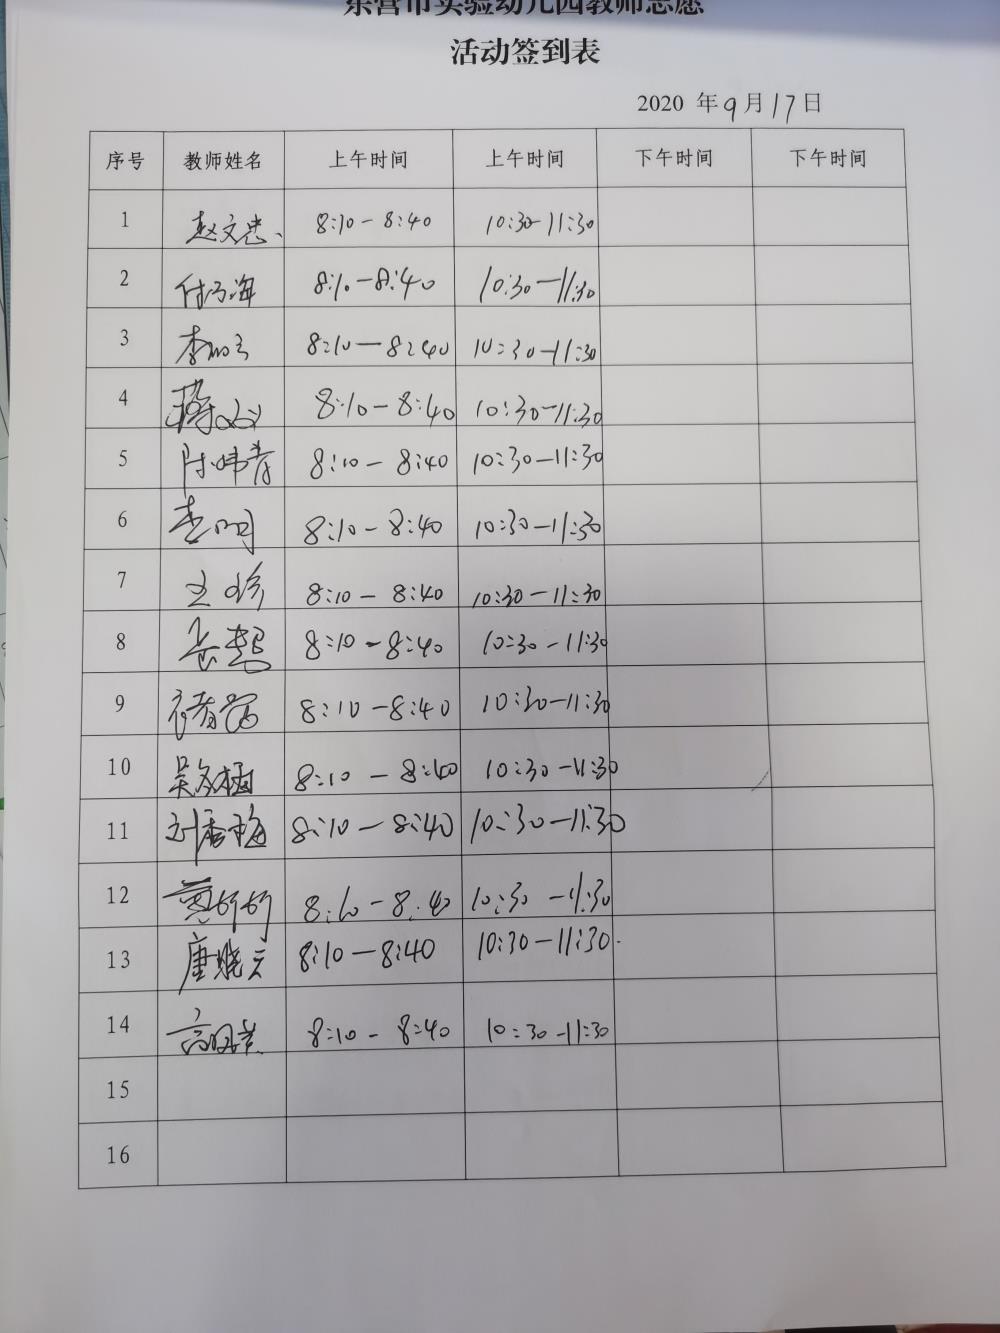 东营市实验幼儿园教师志愿
活动签到表
2020 年 9 月 17 日
序号 教师姓名 上午时间 上午时间 下午时间 下午时间
1 赵文忠 8:10-8:40 10:30-11:30
2 8:10-8:40 10:30-11:30
3 8:10-8:40 10:30-11:30
4 8:10-8:40 10:30-11:30
5 陈炜青 8:10-8:40 10:30-11:30
6 8:10-8:40 10:30-11:30
7 王珍 8:10-8:40 10:30-11:30
8 8:10-8:40 10:30-11:30
9 8:10-8:40 10:30-11:30
10 8:10-8:40 10:30-11:30
11 刘香梅 8:10-8:40 10:30-11:30
12 8:10-8:40 10:30-11:30
13 唐晓云 8:10-8:40 10:30-11:30
14 8:10-8:40 10:30-11:30
15
16